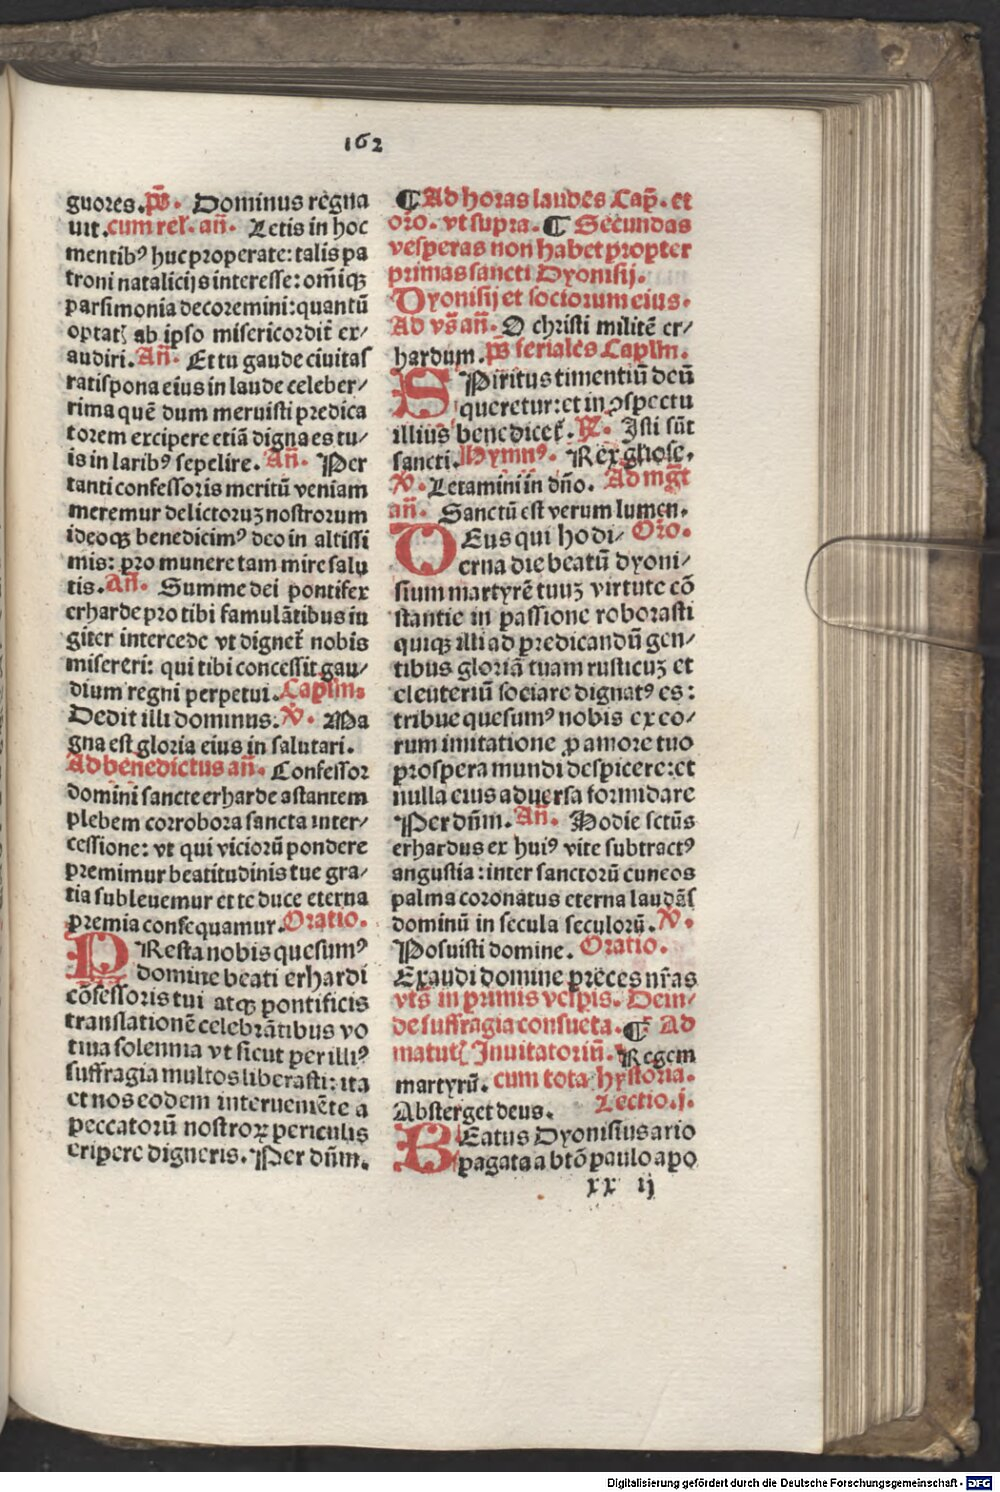 162
guores. p̄s. Dominus regna
uit. cum rel̄. an̄. Letis in hoc
mentibꝰ huc properate: talis pa
troni natalicijs interesse: om̄iqꝫ
parsimonia decoremini: quantū
optatꝭ ab ipso misericordit̄ ex/
audiri. An̄. Et tu gaude ciuitas
ratispona eius in laude celeber/
rima quē dum meruisti predica
torem excipere etiā digna es tu/
is in laribꝰ sepelire. An̄. Per
tanti confessoris meritū veniam
meremur delictoruꝫ nostrorum
ideoqꝫ benedicimꝰ deo in altissi
mis: pro munere tam mire salu
tis. An̄. Summe dei pontifex
erharde pro tibi famulātibus iu
giter intercede vt dignet̄ nobis
misereri: qui tibi concessit gau/
dium regni perpetui. Caplm̄.
Dedit illi dominus. ℣. Ma
gna est gloria eius in salutari.
Ad benedictus an̄. Confessor
domini sancte erharde astantem
plebem corrobora sancta inter/
cessione: vt qui viciorū pondere
premimur beatitudinis tue gra/
tia subleuemur et te duce eterna
premia consequamur. Oratio.
PResta nobis quesumꝰ
domine beati erhardi
cōfessoris tui atqꝫ pontificis
translationē celebrātibus vo
tiua solennia vt sicut per illiꝰ
suffragia multos liberasti: ita
et nos eodem interueniēte a
peccatorū nostroꝝ periculis
eripere digneris. Per dn̄m.
¶ Ad horas laudes Cap̄. et
oro̅. vt supra. ¶ Secundas
vesperas non habet propter
primas sancti Dyonisij.
Dyonisij et sociorum eius.
Ad vs̄ an̄. O christi militē er/
hardum. p̄s feriales Caplm̄.
SPiritus timentiū deū
queretur: et in ꝯspectu
illius benedicet̄. ℟. Isti sūt
sancti. Hymnꝰ. Rex gliose.
℣. Letamini in dn̄o. Ad mg̅t
an̄. Sanctū est verum lumen.
Oro̅.
DEus qui hodi/
erna die beatū dyoni/
sium martyrē tuuꝫ virtute cō
stantie in passione roborasti
quiqꝫ illi ad predicandū gen/
tibus gloriā tuam rusticuꝫ et
eleuteriū sociare dignatꝰ es:
tribue quesumꝰ nobis ex eo/
rum imitatione ꝓ amore tuo
prospera mundi despicere: et
nulla eius aduersa formidare
Per dn̄m. An̄. Hodie sctūs
erhardus ex huiꝰ vite subtractꝰ
angustia: inter sanctorū cuneos
palma coronatus eterna laudās
dominū in secula seculorū. ℣.
Posuisti domine. Oratio.
Exaudi domine preces nr̄as
vts̄ in primis vesp̄is. Dein/
de suffragia consueta. ¶ Ad
matutꝭ Inuitatoriū. Regem
martyrū. cum tota hystoria.
Absterget deus. Lectio .j.
BEatus Dyonisius ario
pagata a btō paulo apo
xx ij
Digitalisierung gefördert durch die Deutsche Forschungsgemeinschaft - DFG